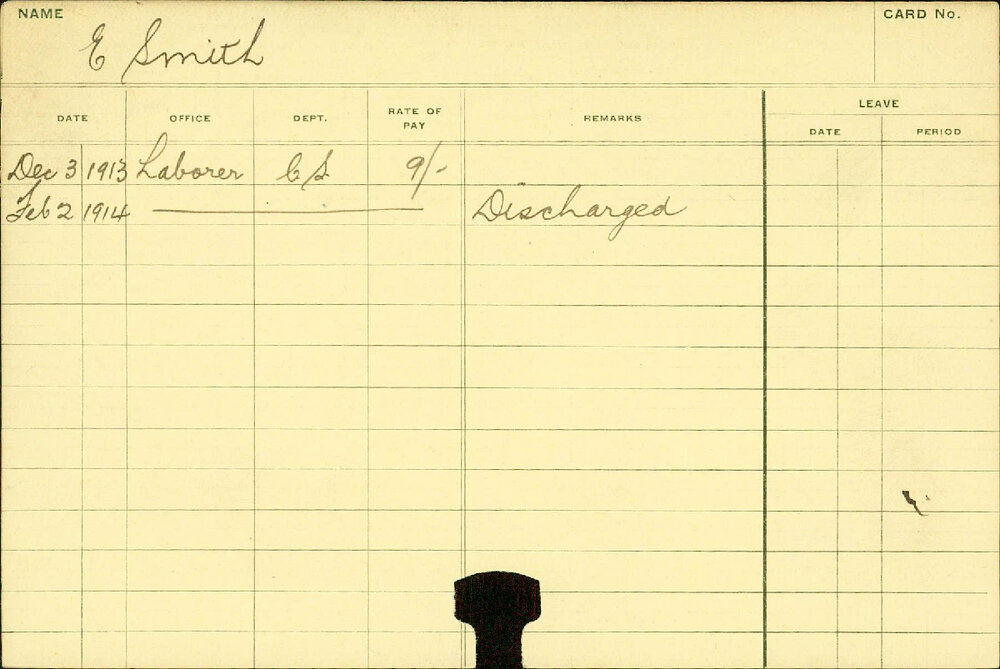 NAME CARD No.
E Smith
LEAVE
DATE OFFICE DEPT. RATE OF PAY REMARKS DATE PERIOD
Dec 3 1913 Laborer C S 9/-
Feb 2 1914 Discharged